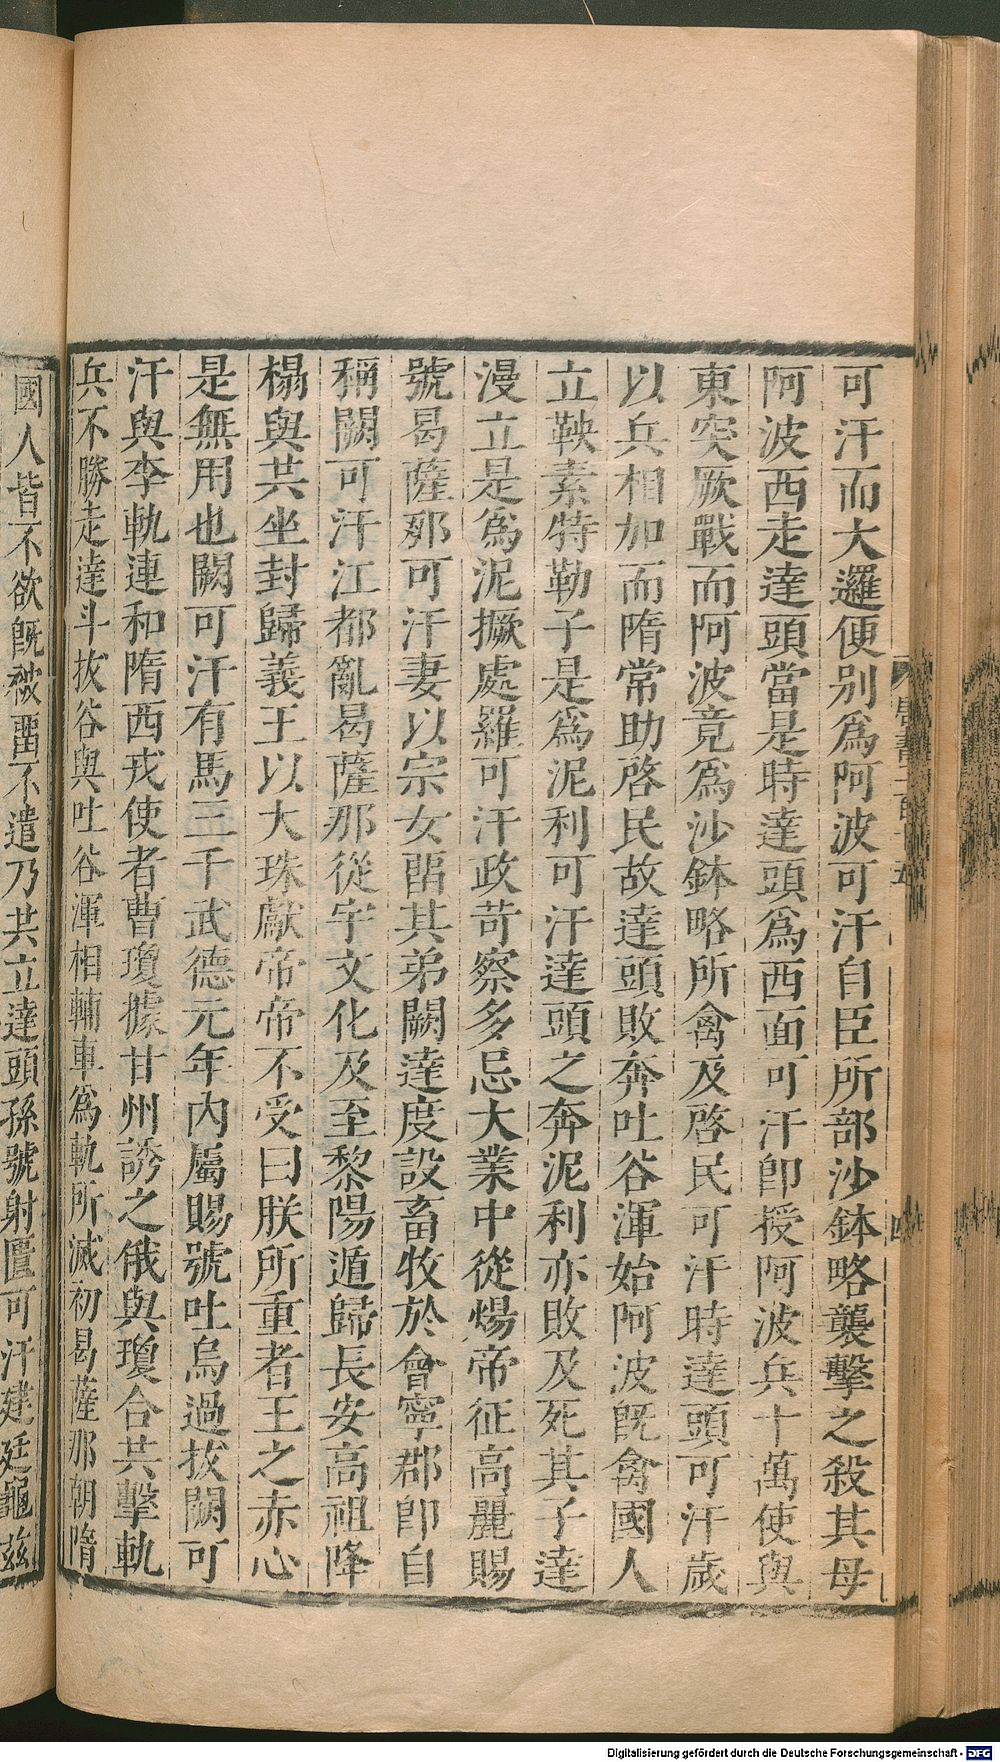 可汗而大邏便别爲阿波可汗自臣所部沙鉢略襲擊之殺其母
阿波西走達頭當是時達頭爲西面可汗卽授阿波兵十萬使與
東突厥戰而阿波竟爲沙鉢略所禽及啓民可汗時達頭可汗歲
以兵相加而隋常助啓民故達頭敗奔吐谷渾始阿波旣禽國人
立鞅素特勒子是爲泥利可汗達頭之奔泥利亦敗及死其子達
漫立是爲泥撅處羅可汗政苛察多忌大業中從煬帝征高麗賜
號曷薩那可汗妻以宗女畱其弟闕達度設畜牧於會寧郡卽自
稱闕可汗江都亂曷薩那從宇文化及至黎陽遁歸長安高祖降
榻與共坐封歸義王以大珠獻帝帝不受曰朕所重者王之赤心
是無用也闕可汗有馬三千武德元年內屬賜號吐烏過拔闕可
汗與李軌連和隋西戎使者曹瓊據甘州誘之俄與瓊合共擊軌
兵不勝走達斗拔谷與吐谷渾相輔車爲軌所滅初曷薩那朝隋
國人皆不欲旣被畱不遣乃共立達頭孫號射匱可汗建廷龜茲
Digitalisierung gefördert durch die Deutsche Forschungsgemeinschaft - DFG